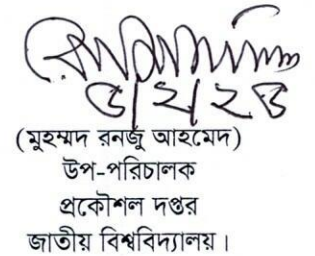 (মুহম্মদ রনজু আহমেদ)
উপ-পরিচালক
প্রকৌশল দপ্তর
জাতীয় বিশ্ববিদ্যালয়।